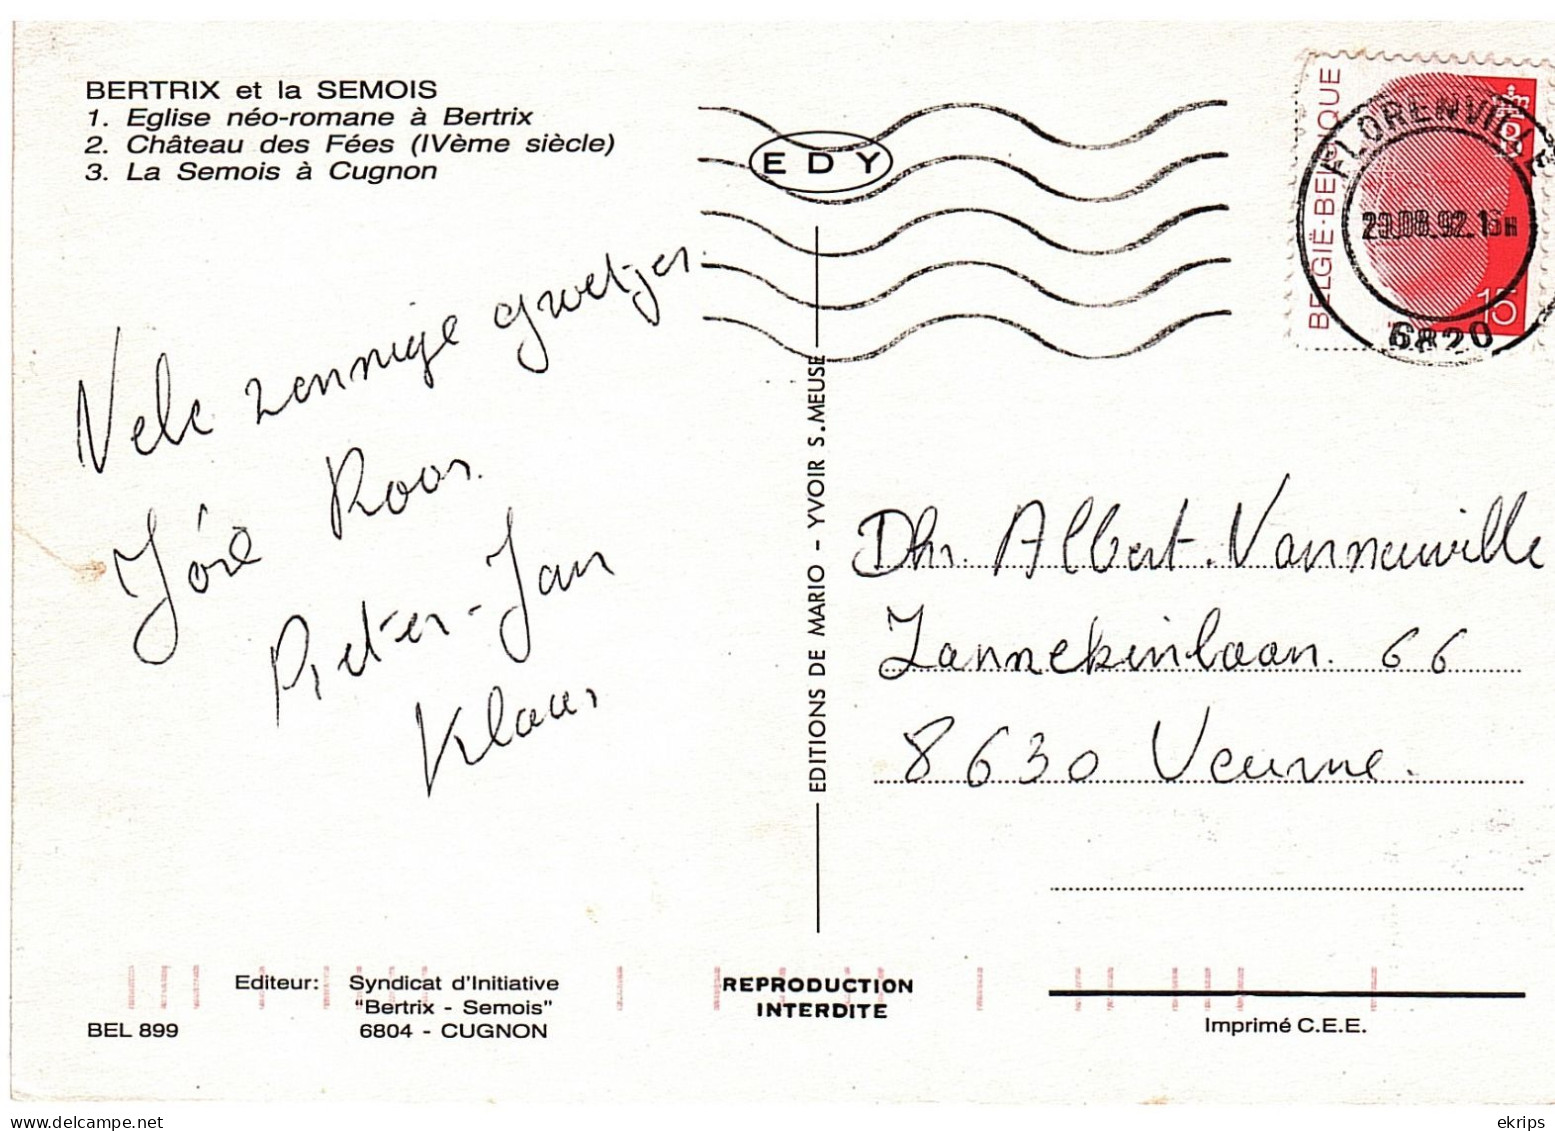 BERTRIX et la SEMOIS
1. Eglise néo-romane à Bertrix
2. Château des Fées (IVème siècle)
3. La Semois à Cugnon
EDY
BELGIË·BELGIQUE
B
15
FLORENVILLE
29.08.92.16H
6820
Vele zonnige groetjes.
Joré Roos.
Pieter-Jan
Klaas
EDITIONS DE MARIO - YVOIR S.MEUSE
Dhr. Albert. Vanneuville
Zannekinlaan. 66
8630 Veurne.
Editeur: Syndicat d'Initiative
"Bertrix - Semois"
6804 - CUGNON
BEL 899
REPRODUCTION
INTERDITE
Imprimé C.E.E.
ekrips